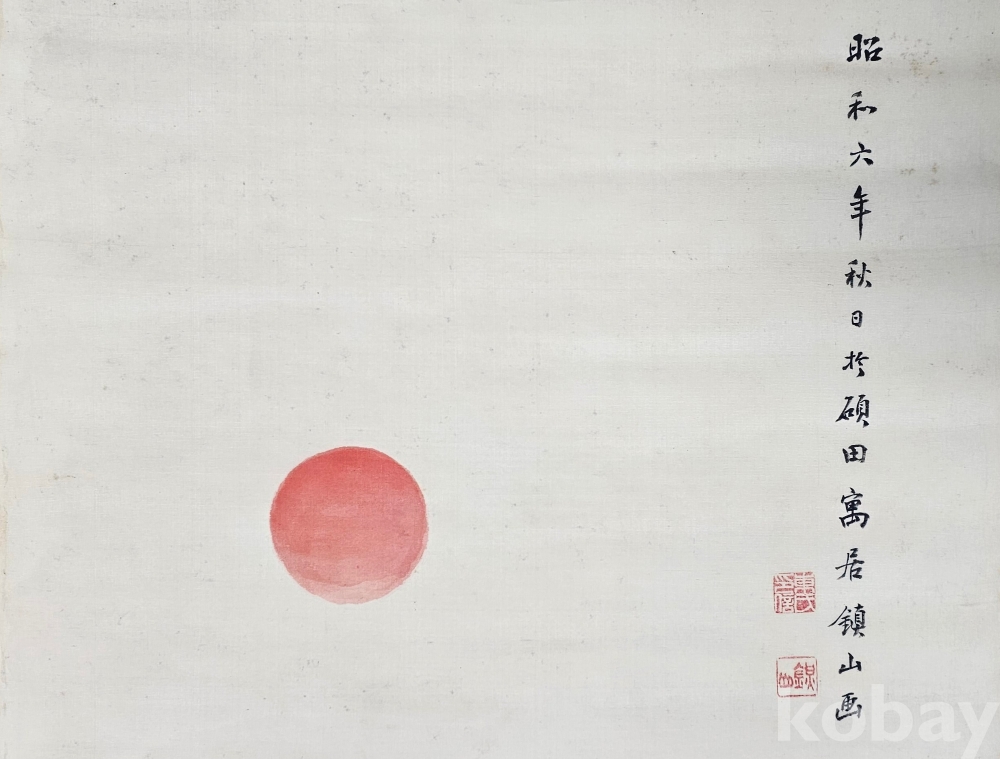 昭和六年秋日於碩田寓居鎮山画
kobay